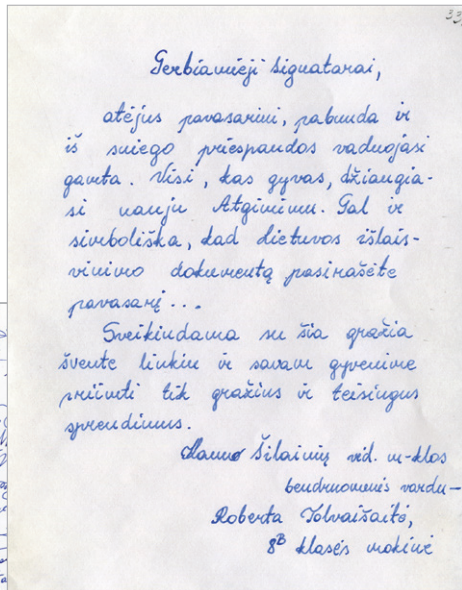 33
Gerbiamieji signatarai,
atėjus pavasariui, pabunda ir
iš sniego priespaudos vaduojasi
gamta. Visi, kas gyvas, džiaugia-
si nauju Atgimimu. Gal ir
simboliška, kad Lietuvos išlais-
vinimo dokumentą pasirašėte
pavasarį...
Sveikindama su šia gražia
švente linkiu ir savam gyvenime
priimti tik gražius ir teisingus
sprendimus.
Kauno Šilainių vid. m-klos
bendruomenės vardu-
Roberta Tolvaišaitė,
8B klasės mokinė